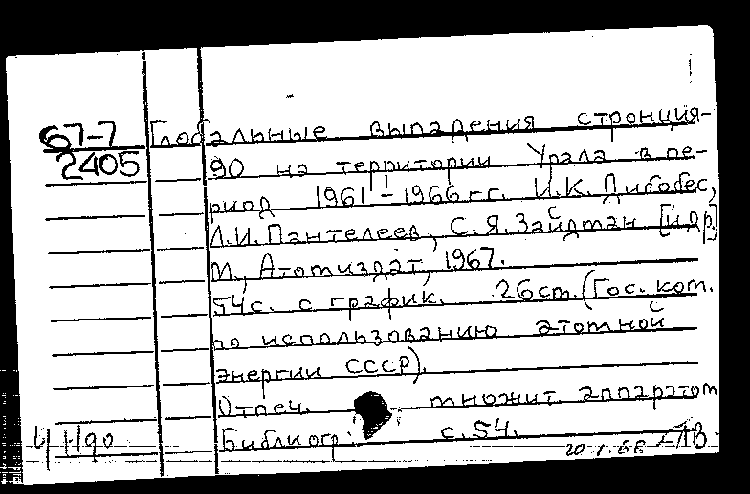 67-7 Глобальные выпадения стронция-
2405 90 на территории Урала в пе-
риод 1961-1966 гг. И.К. Дибобес,
Л.И. Пантелеев, С.Я. Зайдман [и др]
М., Атомиздат, 1967.
54с. с график. 26см. (Гос. ком.
по использованию атомной
энергии СССР).
Отпеч. множит. аппаратом
Библиогр: с.54.